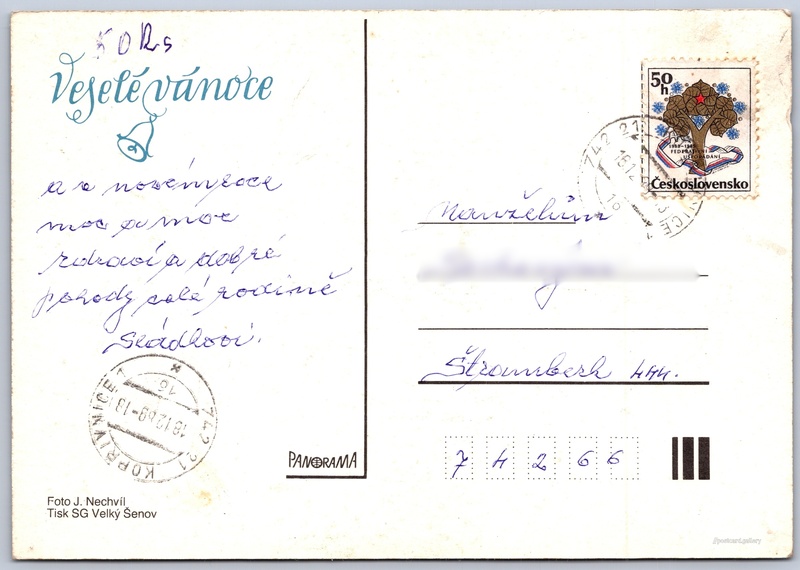 50 h
1969-1989
FEDERATIVNÍ
USPOŘÁDÁNÍ
Československo
Veselé vánoce
a v novém roce
moc a moc
zdraví a dobré
pohody celé rodině
Sládkovi.
742 21 KOPŘIVNICE 1
18.12.89-13
16
742 21
18.12
16
Manželům
Štramberk 444.
7 4 2 6 6
PANORAMA
Foto J. Nechvíl
Tisk SG Velký Šenov
//postcard.gallery